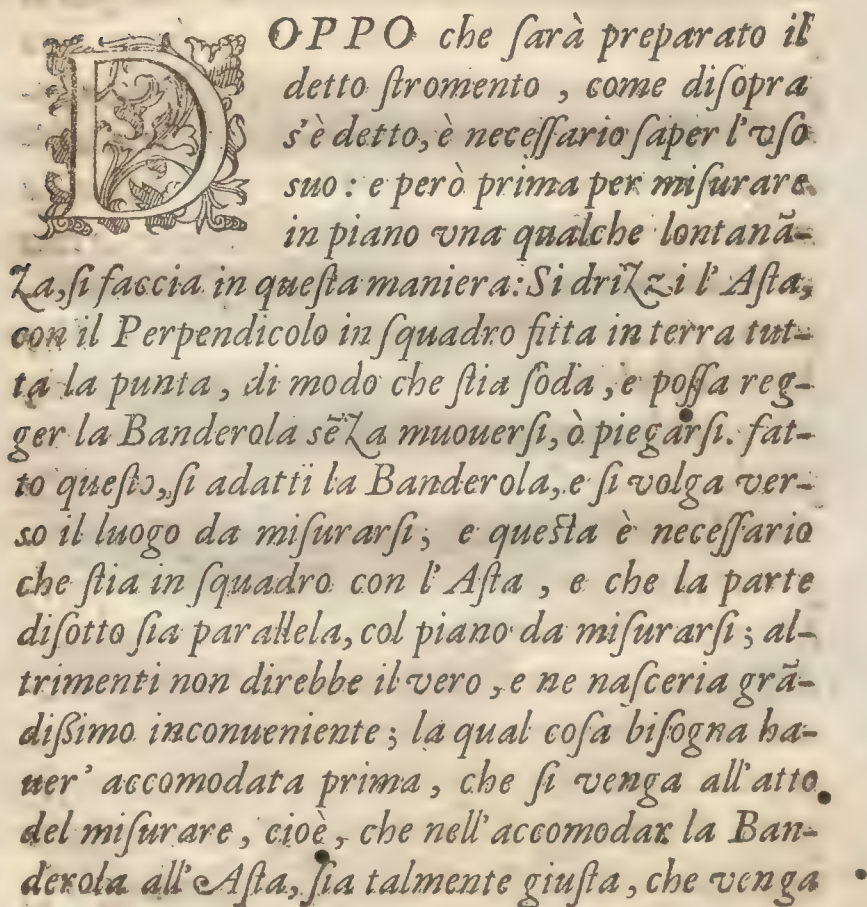 DOPPO che ſarà preparato il
detto ſtromento, come diſopra
s'è detto, è neceſſario ſaper l'vſo
suo: e però prima per miſurare
in piano vna qualche lontanã-
za, ſi faccia in queſta maniera: Si drizzi l'Aſta,
con il Perpendicolo in ſquadro fitta in terra tut-
ta la punta, di modo che ſtia ſoda, e poſſa reg-
ger la Banderola sẽza muouerſi, ò piegarſi. fat-
to queſto, ſi adatti la Banderola, e ſi volga ver-
so il luogo da miſurarſi; e queſta è neceſſario
che ſtia in ſquadro con l'Aſta, e che la parte
diſotto ſia parallela, col piano da miſurarſi; al-
trimenti non direbbe il vero, e ne naſceria grã-
dißimo inconueniente; la qual coſa biſogna ha-
uer' accomodata prima, che ſi venga all'atto
del miſurare, cioè, che nell'accomodar la Ban-
derola all'Aſta, ſia talmente giuſta, che venga